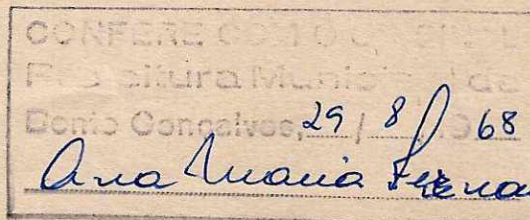 CONFERE COM O
Prefeitura Municipal de
Bento Gonçalves, 29 / 8 / 1968
Ana Maria